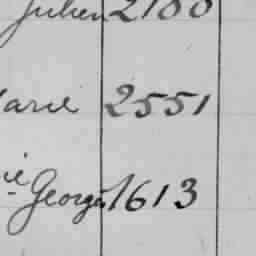 Julien 2100
Marie 2551
ie Georges 1613